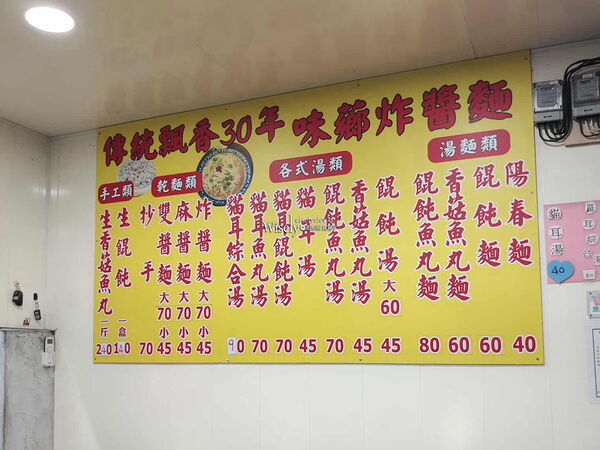 傳統飄香30年 味薌炸醬麵
手工類
生香菇魚丸 一斤 240
生餛飩 一盒 140
乾麵類
抄手 70
雙醬麵 大70 小45
麻醬麵 大70 小45
炸醬麵 大70 小45
各式湯類
貓耳綜合湯 90
貓耳魚丸湯 70
貓耳餛飩湯 70
貓耳湯 45
餛飩魚丸湯 70
香菇魚丸湯 45
餛飩湯 大60 45
湯麵類
餛飩魚丸麵 80
香菇魚丸麵 60
餛飩麵 60
陽春麵 40
Wisely
貓耳湯
40